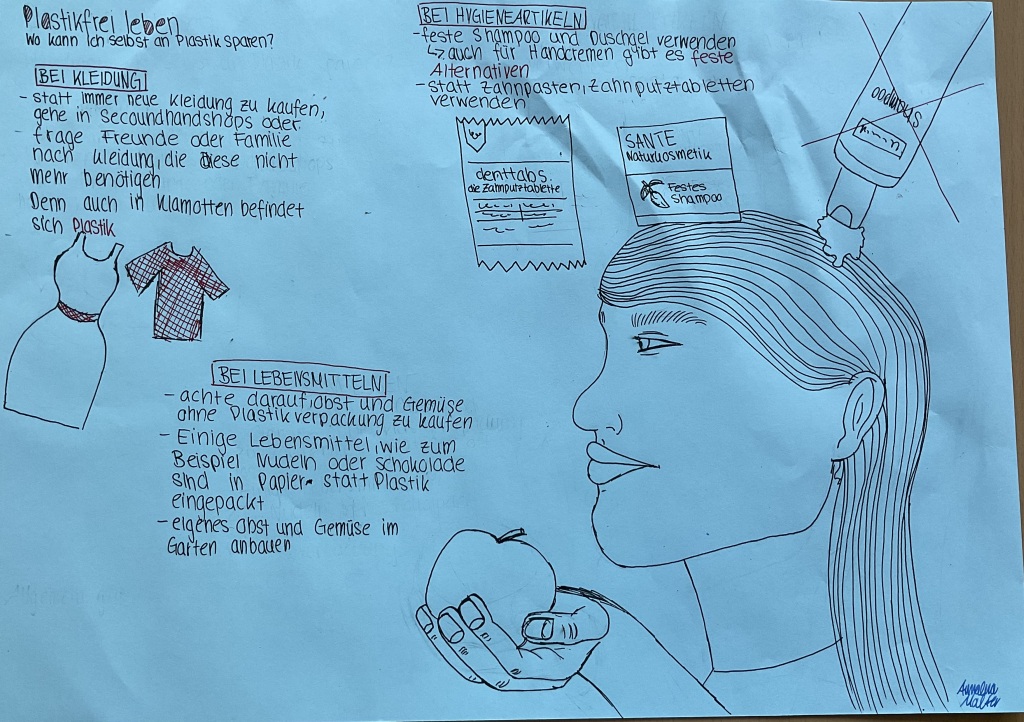 Plastikfrei leben
Wo kann ich selbst an Plastik sparen?
BEI KLEIDUNG
- statt immer neue Kleidung zu kaufen,
gehe in Secoundhandshops oder
- frage Freunde oder Familie
nach Kleidung, die diese nicht
mehr benötigen
Denn auch in Klamotten befindet
sich Plastik
BEI HYGIENEARTIKELN
- feste Shampoo und Duschgel verwenden
↳ auch für Handcremen gibt es feste
Alternativen
- statt Zahnpasten, Zahnputztabletten
verwenden
denttabs
die Zahnputztablette
SANTE
Naturkosmetik
Festes
Shampoo
Shampoo
BEI LEBENSMITTELN
- achte darauf, obst und Gemüse
ohne Plastikverpackung zu kaufen
- Einige Lebensmittel, wie zum
Beispiel Nudeln oder Schokolade
sind in Papier statt Plastik
eingepackt
- eigenes Obst und Gemüse im
Garten anbauen